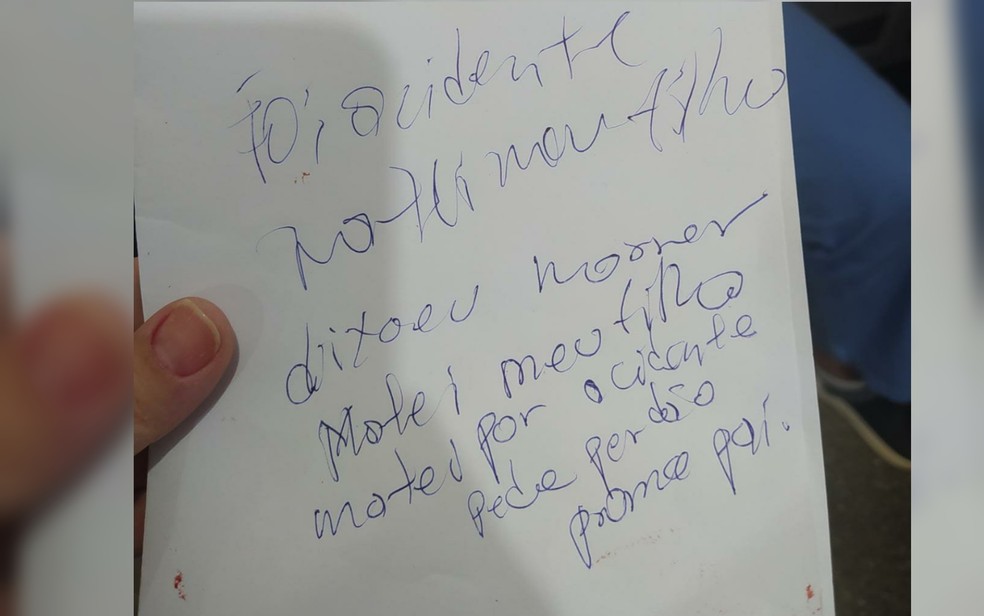 Foi acidente
matei meu filho
dixaeu morrer
Matei meu filho
matei por acidente
pede perdão
prameo pai.